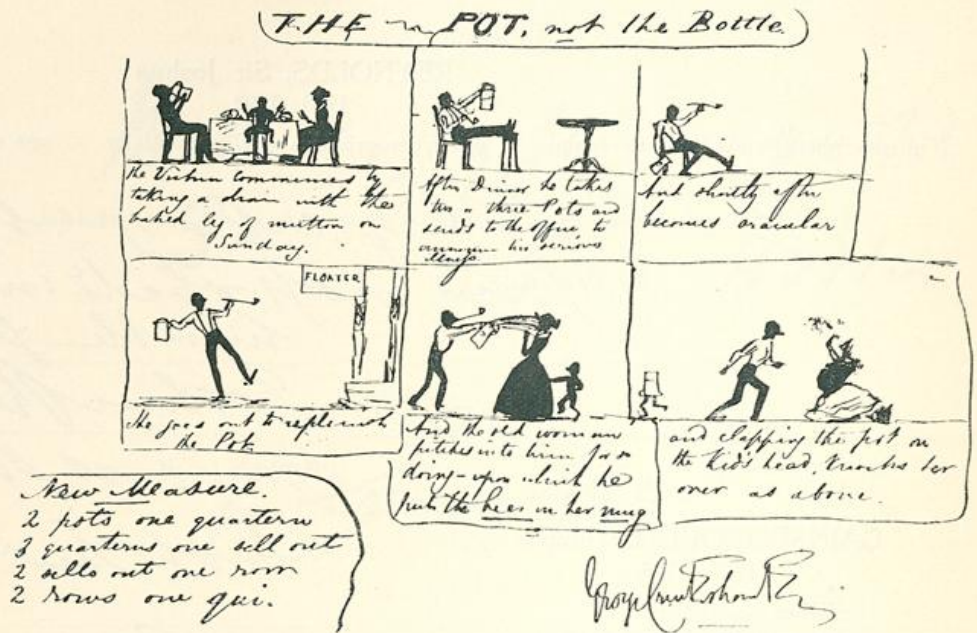 THE POT, not the Bottle.
The Victim commences by
taking a drain with the
baked leg of mutton on
Sunday.
After Dinner he takes
two or three Pots and
sends to the office to
announce his serious
illness
And shortly after
becomes oracular
FLOATER
He goes out to replenish
the Pot.
And the old woman
pitches into him for so
doing – upon which he
puts the bees in her mug
and clapping the pot on
the Kid's head, knocks her
over as above.
New Measure.
2 pots one quartern
3 quarterns one sell out
2 sells out one row
2 rows one qui.
George Cruikshank